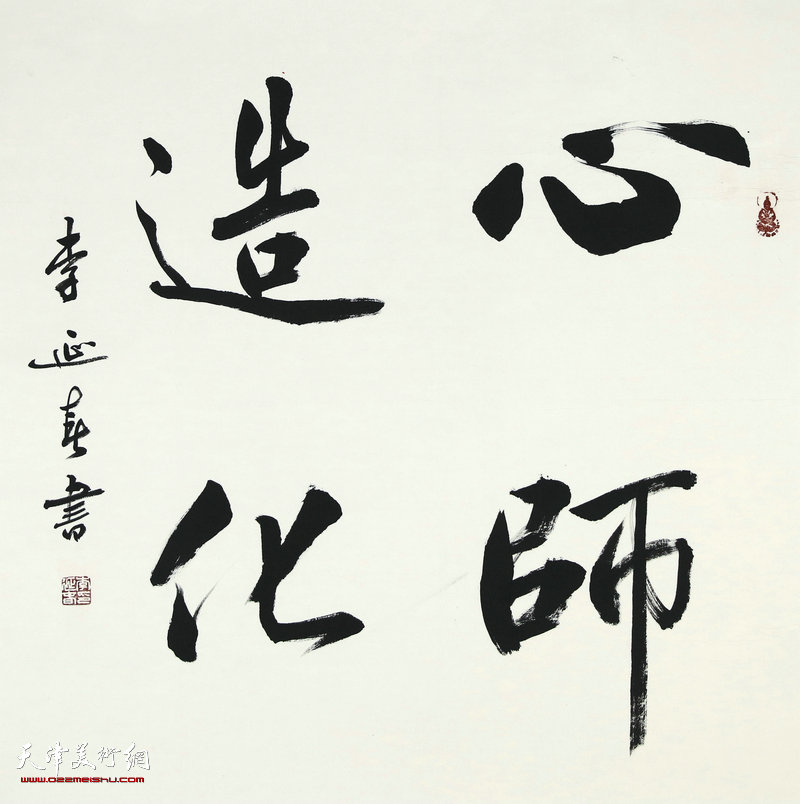 心師
造化
李延春書
天津美術網
www.022meishu.com